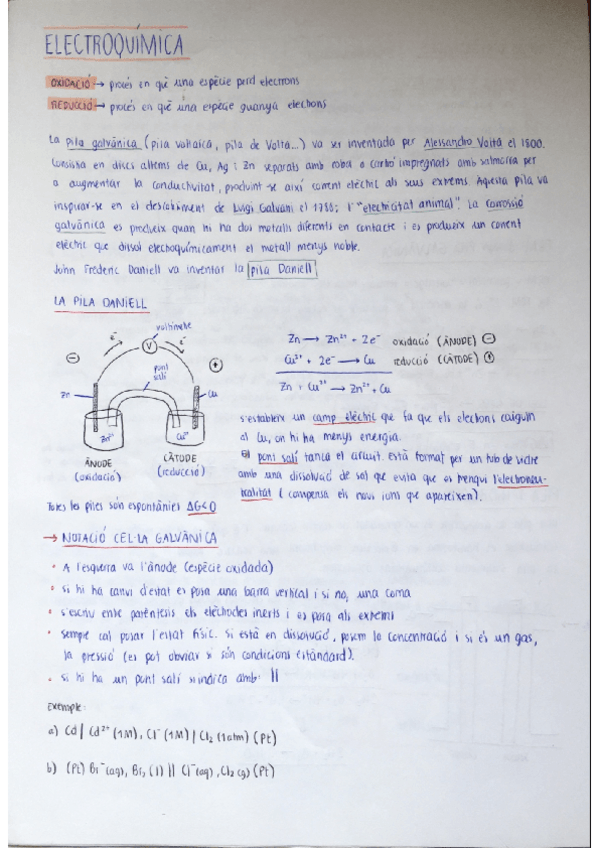 ELECTROQUÍMICA
OXIDACIÓ → procés en què una espècie perd electrons
REDUCCIÓ → procés en què una espècie guanya electrons
La pila galvànica (pila voltaica, pila de Volta...) va ser inventada per Alessandro Volta el 1800.
Consistia en discs alterns de Cu, Ag i Zn separats amb roba o cartó impregnats amb salmorra per
a augmentar la conductivitat, produint-se així corrent elèctric als seus extrems. Aquesta pila va
inspirar-se en el descobriment de Luigi Galvani el 1780; l'"electricitat animal". La corrosió
galvànica es produeix quan hi ha dos metalls diferents en contacte i es produeix un corrent
elèctric que dissol electroquímicament el metall menys noble.
John Frederic Daniell va inventar la pila Daniell
LA PILA DANIELL
voltímetre
e⁻ V e⁻
⊖ ⊕
pont salí
Zn Cu
Zn²⁺ Cu²⁺
ÀNODE (oxidació)
CÀTODE (reducció)
Zn → Zn²⁺ + 2e⁻ oxidació (ÀNODE) ⊖
Cu²⁺ + 2e⁻ → Cu reducció (CÀTODE) ⊕
Zn + Cu²⁺ → Zn²⁺ + Cu
s'estableix un camp elèctric que fa que els electrons caiguin
al Cu, on hi ha menys energia.
El pont salí tanca el circuit. Està format per un tub de vidre
amb una dissolució de sal que evita que es trenqui l'electroneu-
tralitat (compensa els nous ions que apareixen).
Totes les piles són espontànies ΔG<0
→ NOTACIÓ CEL·LA GALVÀNICA
• A l'esquerra va l'ànode (espècie oxidada)
• si hi ha canvi d'estat es posa una barra vertical i si no, una coma
• s'escriu entre parèntesis els elèctrodes inerts i es posa als extrems
• sempre cal posar l'estat físic. Si està en dissolució, posem la concentració i si és un gas,
la pressió (es pot obviar si són condicions estàndard).
• si hi ha un pont salí s'indica amb: ||
Exemple:
a) Cd | Cd²⁺ (1M), Cl⁻ (1M) | Cl₂ (1atm) (Pt)
b) (Pt) Br⁻ (aq), Br₂ (l) || Cl⁻ (aq), Cl₂ (g) (Pt)